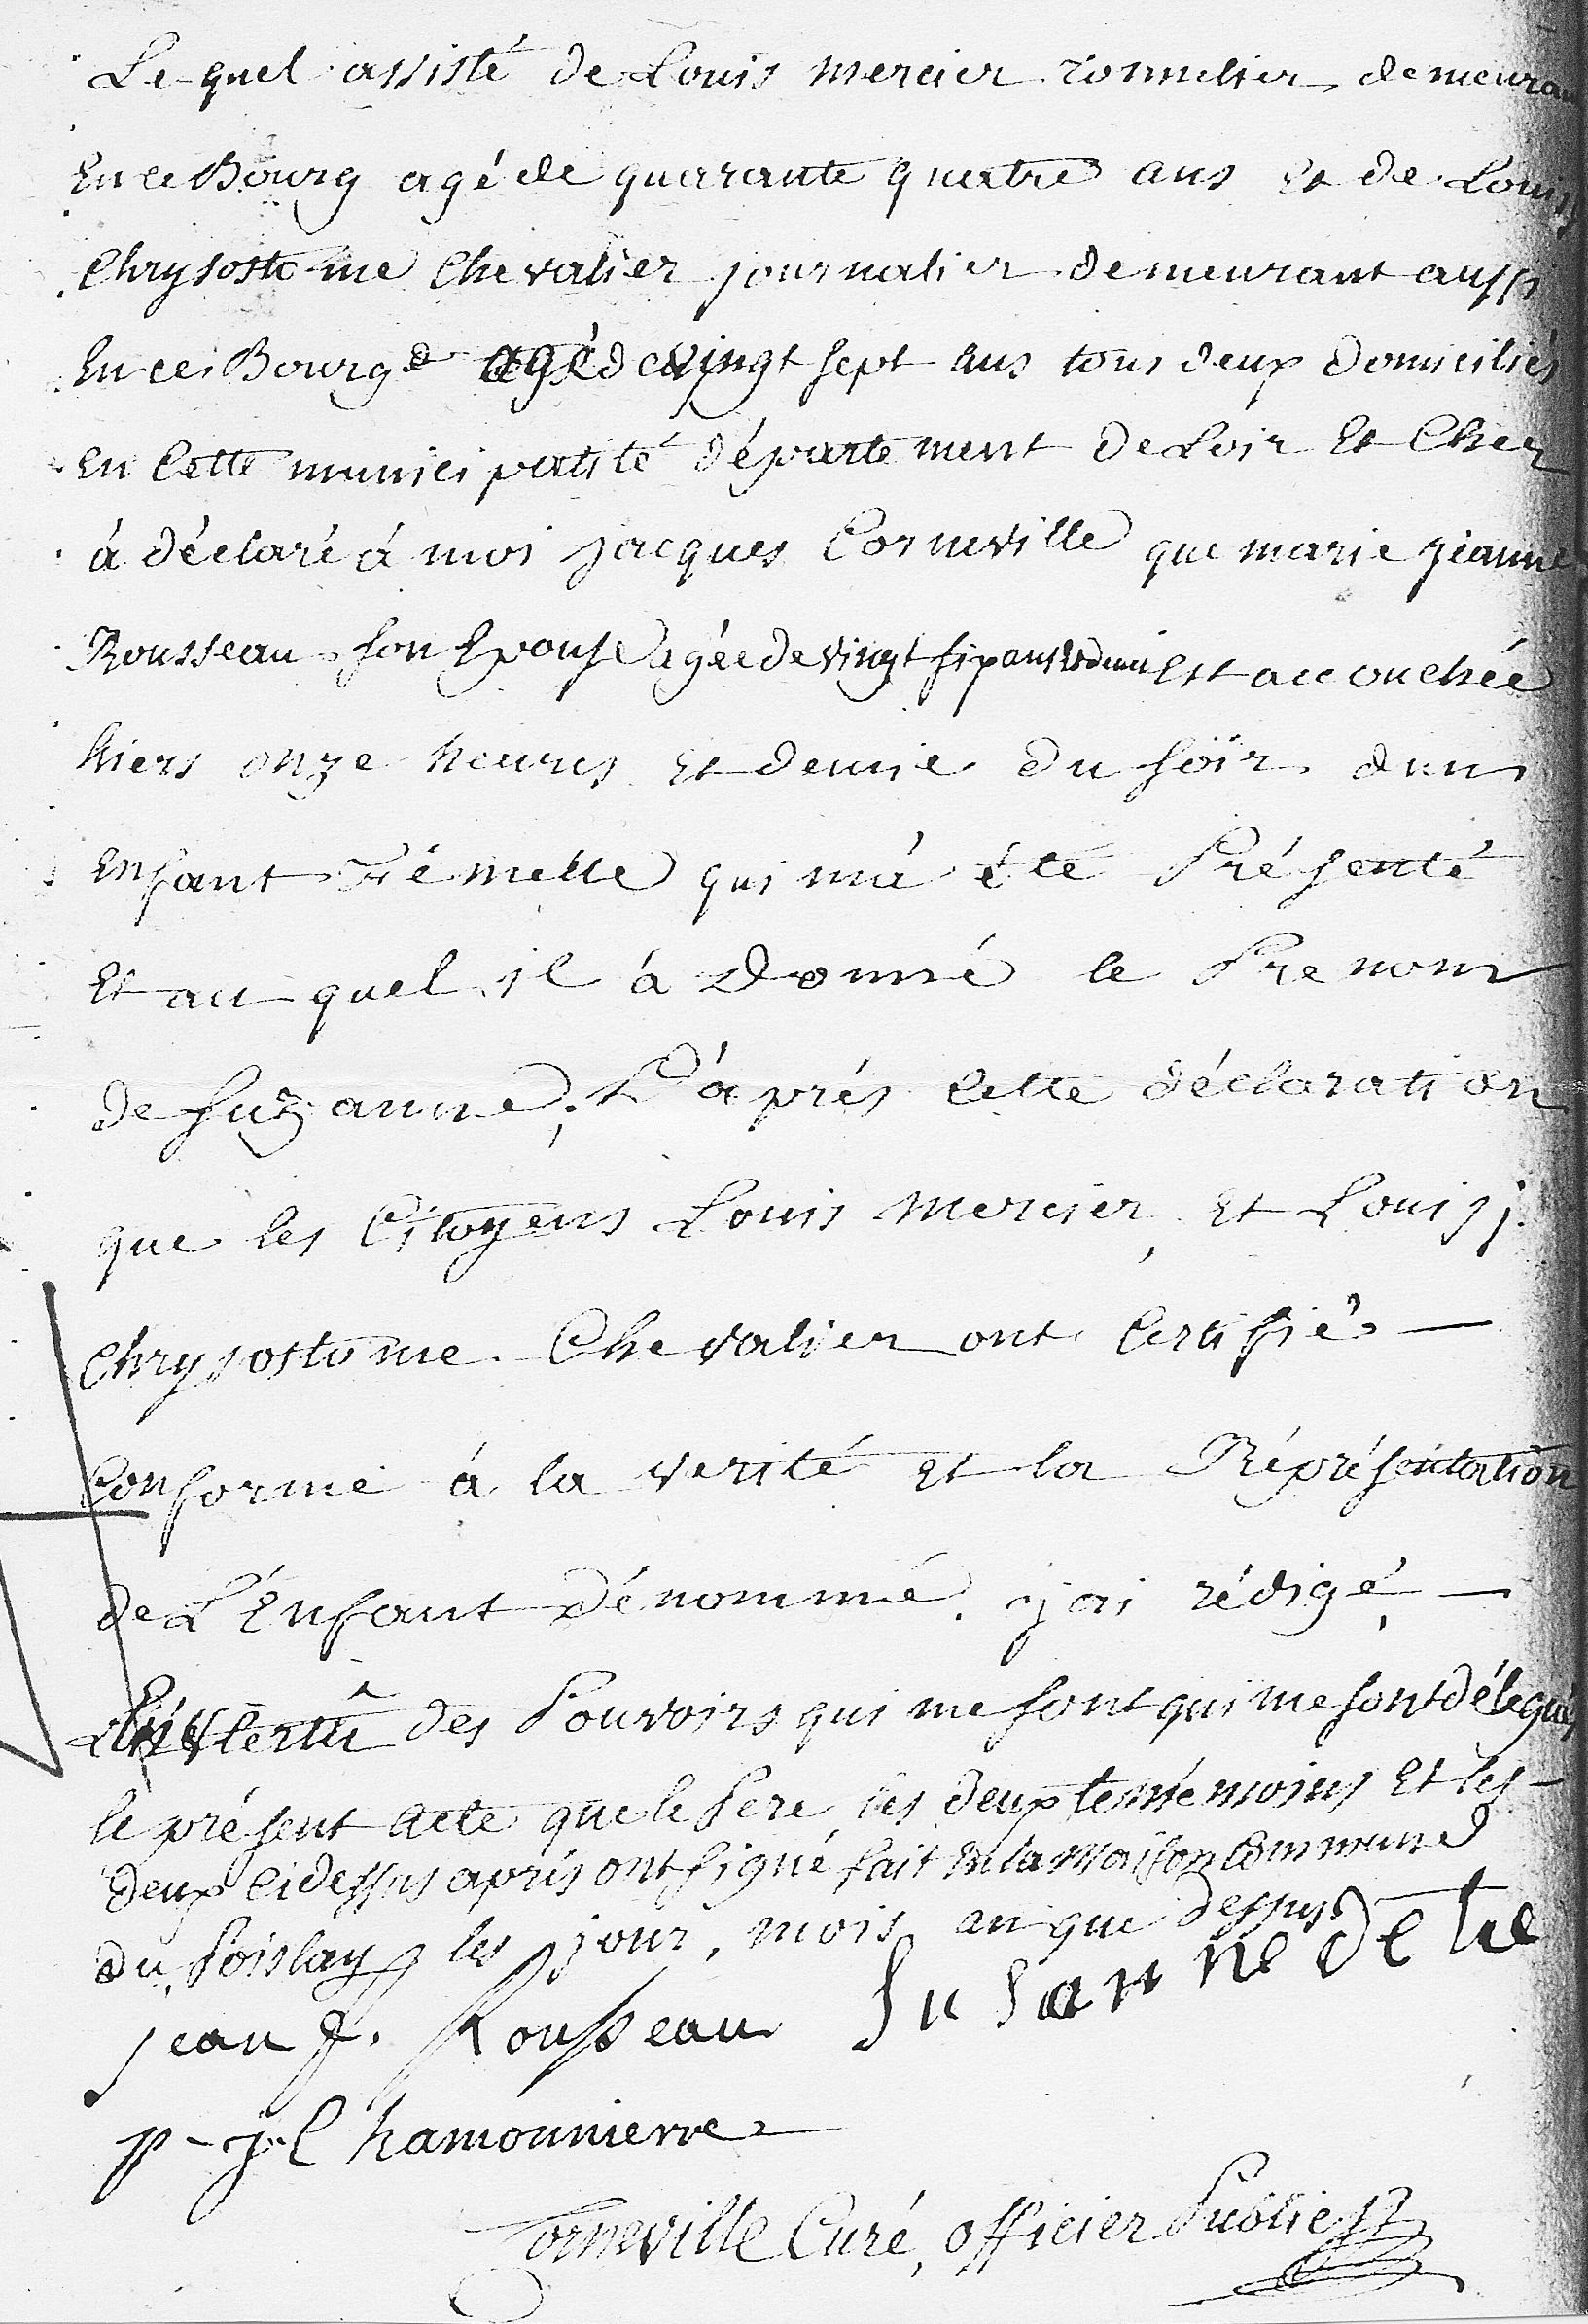 Le quel assisté de Louis mercier tonnelier demeurant
En ce Bourg agé de quarante quatre ans et de Louis
Chrysostome Chevalier journalier demeurant aussi
En ce Bourg agé de vingt sept ans tous deux domiciliés
en Cette municipalité département de Loir Et Cher
à déclaré à moi jacques Corneville que marie jeanne
Rousseau son Epouse agée de vingt six ans et demi Est accouchée
hiers onze heures et demie du soir d'un
enfant Fémelle qui m'a été Présenté
Et au quel il à Donné le Prenom
de suzanne; D'après Cette déclaration
que les Citoyens Louis Mercier, et Louis j.
Chrysostome Chevalier ont Certifié
Conforme à la verité et la Réprésentation
de L'Enfant dénommé. j'ai rédigé,
En Vertu des Pouvoirs qui me sont qui me sont délegués
le présent acte que le Pere, les deux témoins Et les
deux ci dessus apris ont signé fait en la Maison Commune
du Poislay les jour, mois, an que dessus.
jean f. Rousseau Susanne
p - j. Chamonnierre
Corneville Curé, officier Public